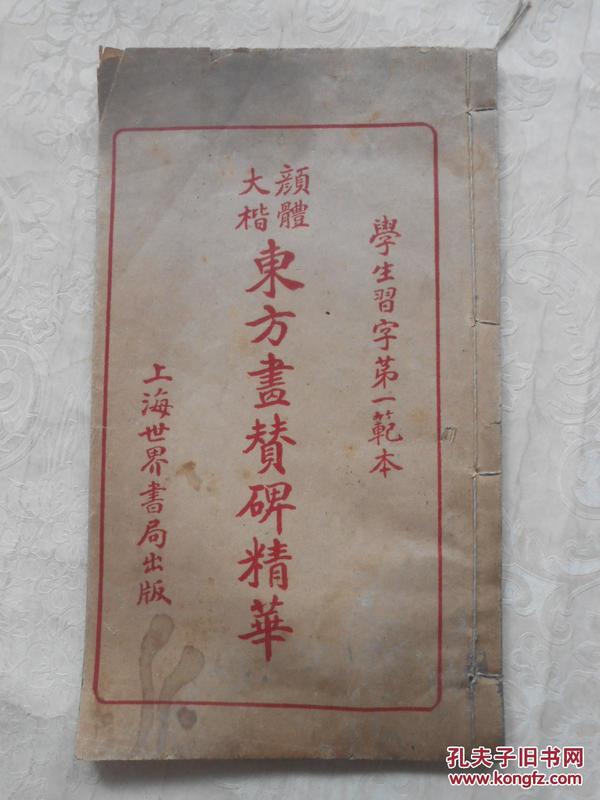 學生習字第一範本
顔體
大楷
東方畫賛碑精華
上海世界書局出版
孔夫子旧书网
www.kongfz.com